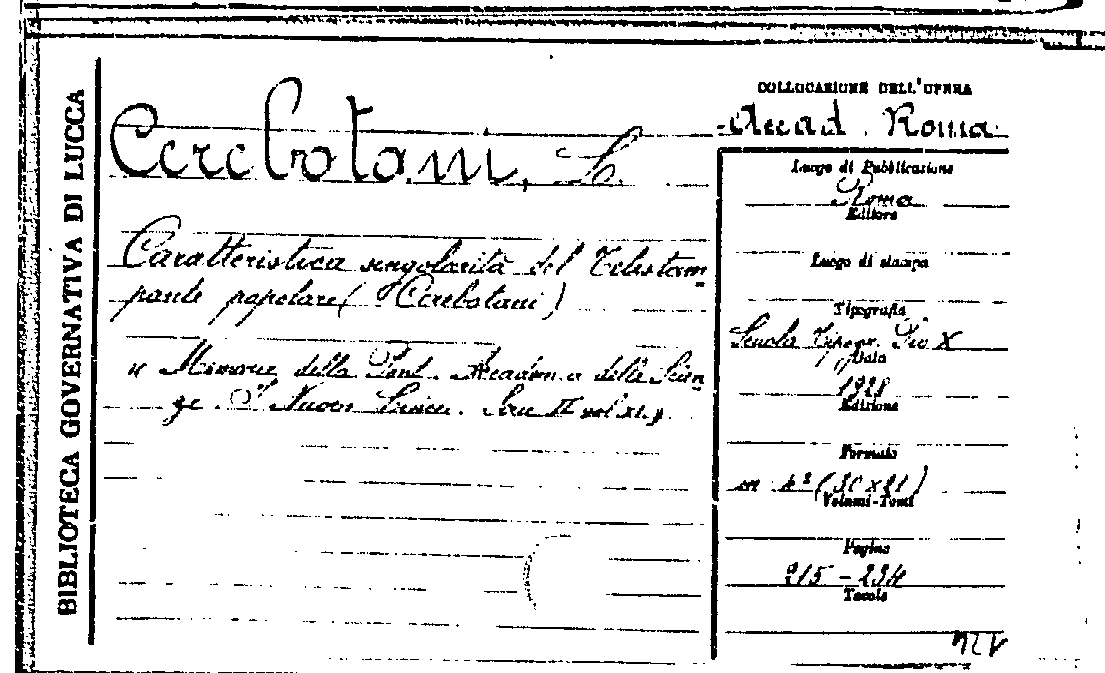 BIBLIOTECA GOVERNATIVA DI LUCCA
Cerebotani, L.
Caratteristica singolarità del Telestam
pante popolare ( Cerebotani )
Memorie della Pont. Accademia delle Scien
ze. I Nuovi Lincei. Serie II vol. XI.
COLLOCAZIONE DELL'OPERA
Accad. Roma
Luogo di Pubblicazione
Roma
Editore
Luogo di stampa
Tipografia
Scuola Tipogr. Pio X
Data
1928
Edizione
Formato
in 4° (30x21)
Volumi-Tomi
Pagine
215 - 234
Tavole